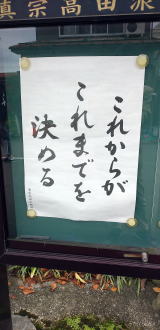 真宗高田派
これからが
これまでを
決める